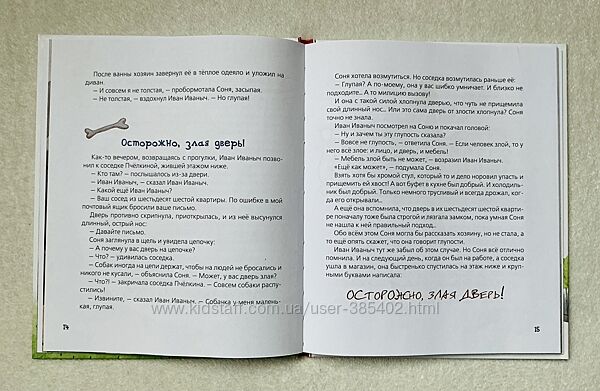 После ванны хозяин завернул её в тёплое одеяло и уложил на
диван.
— И совсем я не толстая, — пробормотала Соня, засыпая.
— Не толстая, — вздохнул Иван Иваныч. — Но глупая!
Осторожно, злая дверь!
Как-то вечером, возвращаясь с прогулки, Иван Иваныч позво-
нил к соседке Пчёлкиной, жившей этажом ниже.
— Кто там? — послышалось из-за двери.
— Иван Иваныч, — сказал Иван Иваныч.
— Какой ещё Иван Иваныч?
— Ваш сосед из шестьдесят шестой квартиры. По ошибке в мой
почтовый ящик бросили ваше письмо.
Дверь противно скрипнула, приоткрылась, и из неё высунулся
длинный, острый нос:
— Давайте письмо.
Соня заглянула в щель и увидела цепочку:
— А почему у вас дверь на цепочке?
— Что?! — удивилась соседка.
— Собак иногда на цепи держат, чтобы на людей не бросались и
никого не кусали, — объяснила Соня. — Может, у вас дверь злая?
— Что?! — закричала соседка Пчёлкина. — Совсем собаки распу-
стились!
— Извините, — сказал Иван Иваныч. — Собачка у меня малень-
кая, глупая.
14
Соня хотела возмутиться. Но соседка возмутилась раньше её:
— Глупая? А по-моему, она у вас шибко умничает. И близко не
подходите.. А то милицию вызову!
И она с такой силой хлопнула дверью, что чуть не прищемила
свой длинный нос.. Или это сама дверь от злости хлопнула? Соня
точно не знала.
Иван Иваныч посмотрел на Соню и покачал головой:
— Ну и зачем ты эту глупость сказала?
— Вовсе не глупость, — ответила Соня. — Если человек злой, то у
него всё злое: и лицо, и дверь, и мебель!
— Мебель злой быть не может, — возразил Иван Иваныч.
«Ещё как может», — подумала Соня.
Взять хотя бы хромой стул, который то и дело норовил упасть и
прищемить ей хвост! А вот буфет в кухне был добрый. И холодиль-
ник был добрый. Только немного трусливый и всегда дрожал, ког-
да его открывали..
А ещё она вспомнила, что дверь в их шестьдесят шестой кварти-
ре поначалу тоже была строгой и лязгала замком, пока умная Соня
не нашла к ней правильный подход..
Обо всём этом Соня могла бы рассказать хозяину, но не стала, а
то ещё опять скажет, что она говорит глупости.
Иван Иваныч тут же забыл об этом случае. Но Соня всё отлично
помнила. И на следующий день, когда он был на работе, а соседка
ушла в магазин, она быстренько спустилась на этаж ниже и круп-
ными буквами написала:
ОСТОРОЖНО, ЗЛАЯ ДВЕРЬ!
15
www.kidstaff.com.ua/user-385402.html